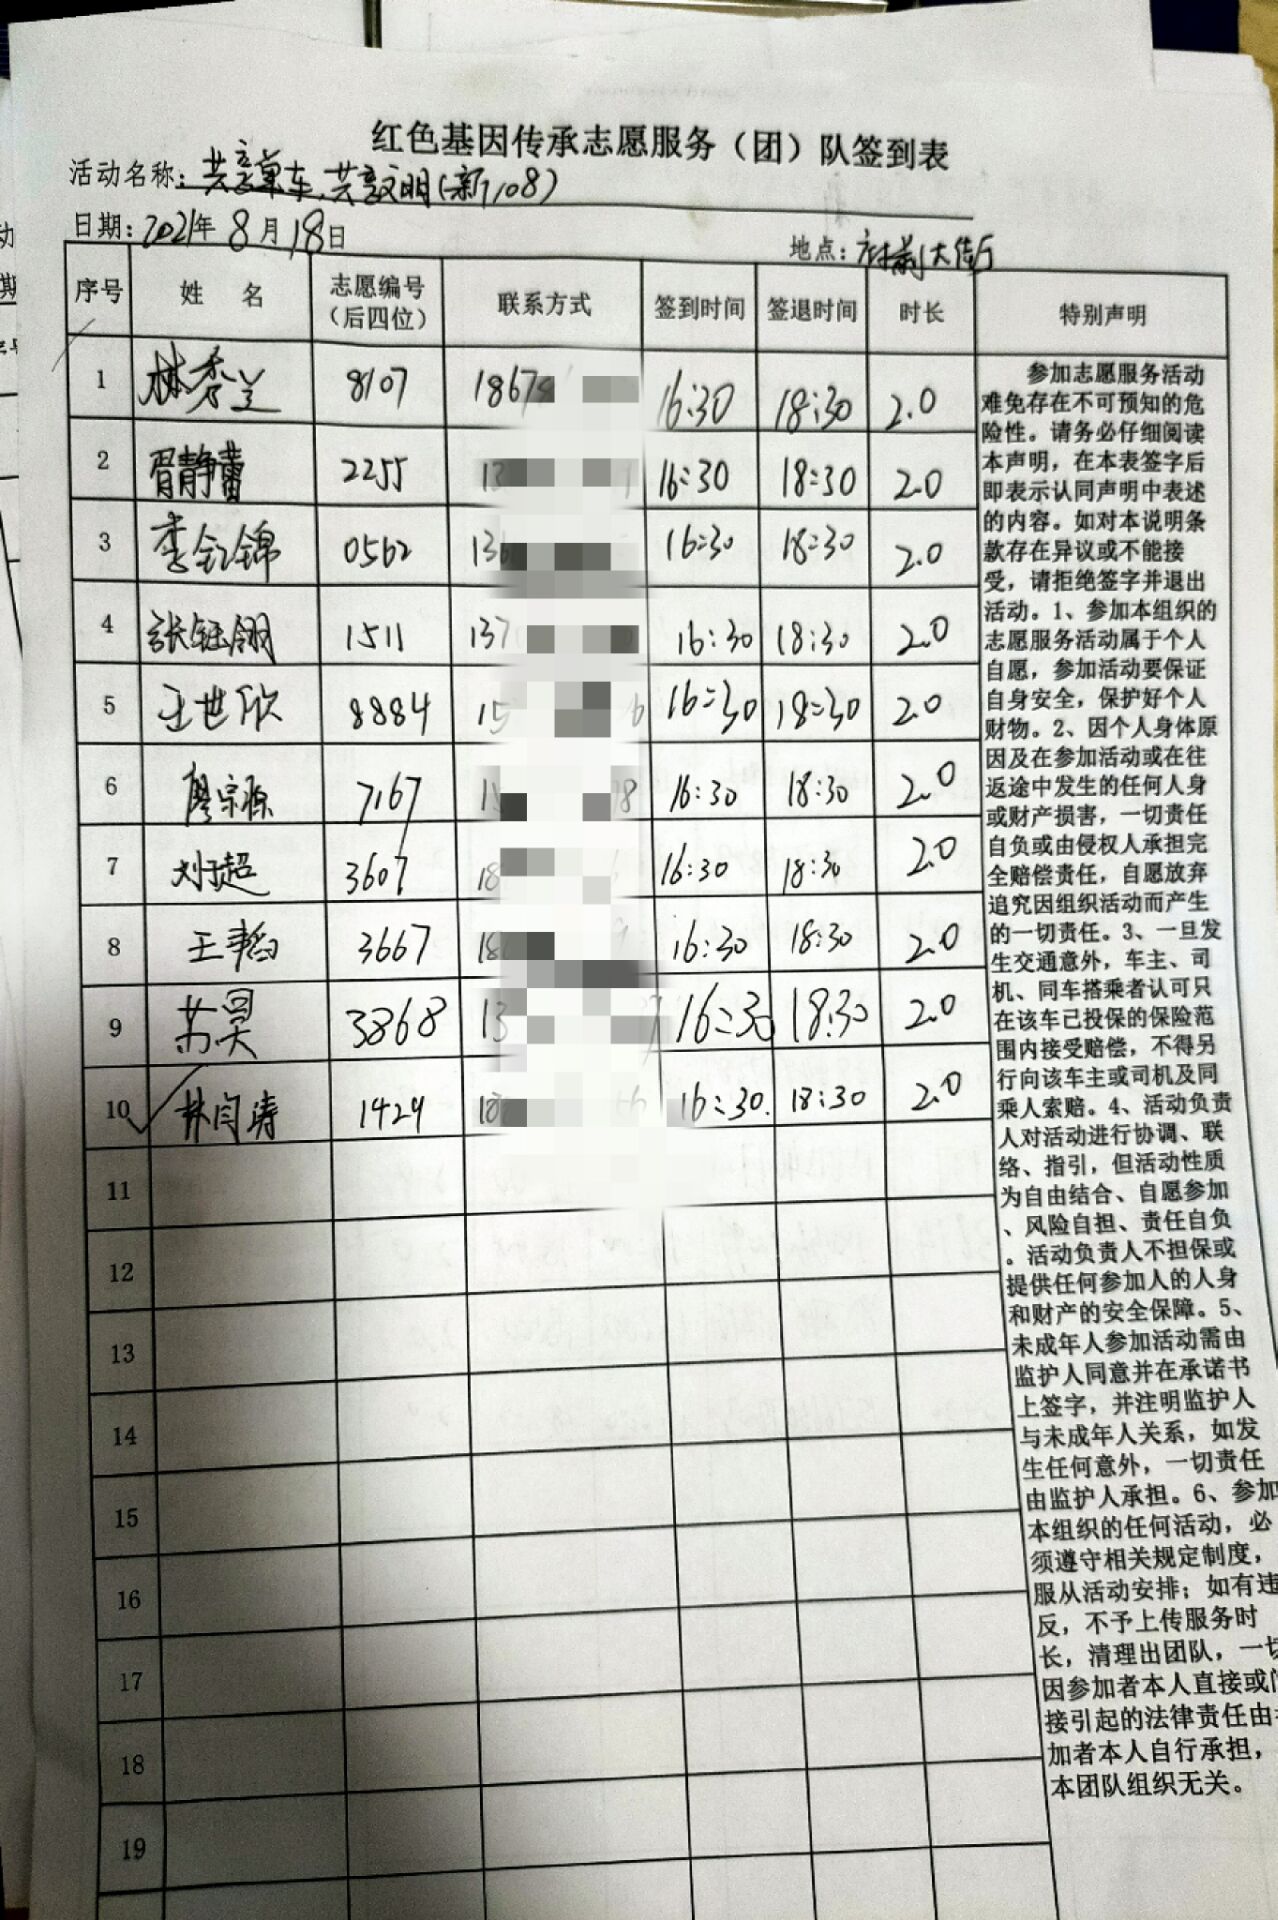 红色基因传承志愿服务（团）队签到表
活动名称：共享单车，共享文明（新1,08）
日期：2021年8月18日
地点：府前大街
序号 姓 名 志愿编号（后四位） 联系方式 签到时间 签退时间 时长 特别声明
1 林秀兰 8107 1867 16:30 18:30 2.0
2 胥静蕾 2255 13 16:30 18:30 2.0
3 李钰锦 0562 136 16:30 18:30 2.0
4 張钰翎 1511 137 16:30 18:30 2.0
5 王世欣 8884 15 16:30 18:30 2.0
6 廖宗源 7167 78 16:30 18:30 2.0
7 刘超 3607 18 16:30 18:30 2.0
8 王韬 3667 18 16:30 18:30 2.0
9 苏昊 3868 13 16:30 18:30 2.0
10 林闫涛 1429 18 16:30 18:30 2.0
11
12
13
14
15
16
17
18
19
参加志愿服务活动
难免存在不可预知的危
险性。请务必仔细阅读
本声明，在本表签字后
即表示认同声明中表述
的内容。如对本说明条
款存在异议或不能接
受，请拒绝签字并退出
活动。1、参加本组织的
志愿服务活动属于个人
自愿，参加活动要保证
自身安全，保护好个人
财物。2、因个人身体原
因及在参加活动或在往
返途中发生的任何人身
或财产损害，一切责任
自负或由侵权人承担完
全赔偿责任，自愿放弃
追究因组织活动而产生
的一切责任。3、一旦发
生交通意外，车主、司
机、同车搭乘者认可只
在该车已投保的保险范
围内接受赔偿，不得另
行向该车主或司机及同
乘人索赔。4、活动负责
人对活动进行协调、联
络、指引，但活动性质
为自由结合、自愿参加
、风险自担、责任自负
。活动负责人不担保或
提供任何参加人的人身
和财产的安全保障。5、
未成年人参加活动需由
监护人同意并在承诺书
上签字，并注明监护人
与未成年人关系，如发
生任何意外，一切责任
由监护人承担。6、参加
本组织的任何活动，必
须遵守相关规定制度，
服从活动安排；如有违
反，不予上传服务时
长，清理出团队，一切
因参加者本人直接或间
接引起的法律责任由参
加者本人自行承担，
本团队组织无关。